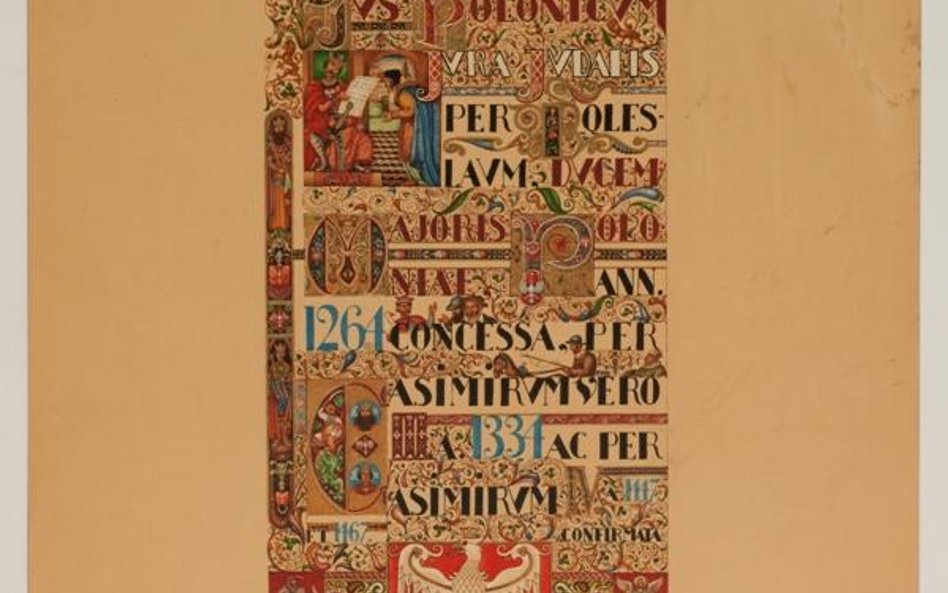 JVS POLONICVM
JVRA JVDAEIS
PER BOLES-
LAVM, DVCEM
MAJORIS POLO
NIAE ANN.
1264 CONCESSA, PER
CASIMIRVM VERO
III A. 1334 AC PER
CASIMIRVM IV A. 1447
ET 1467 CONFIRMATA